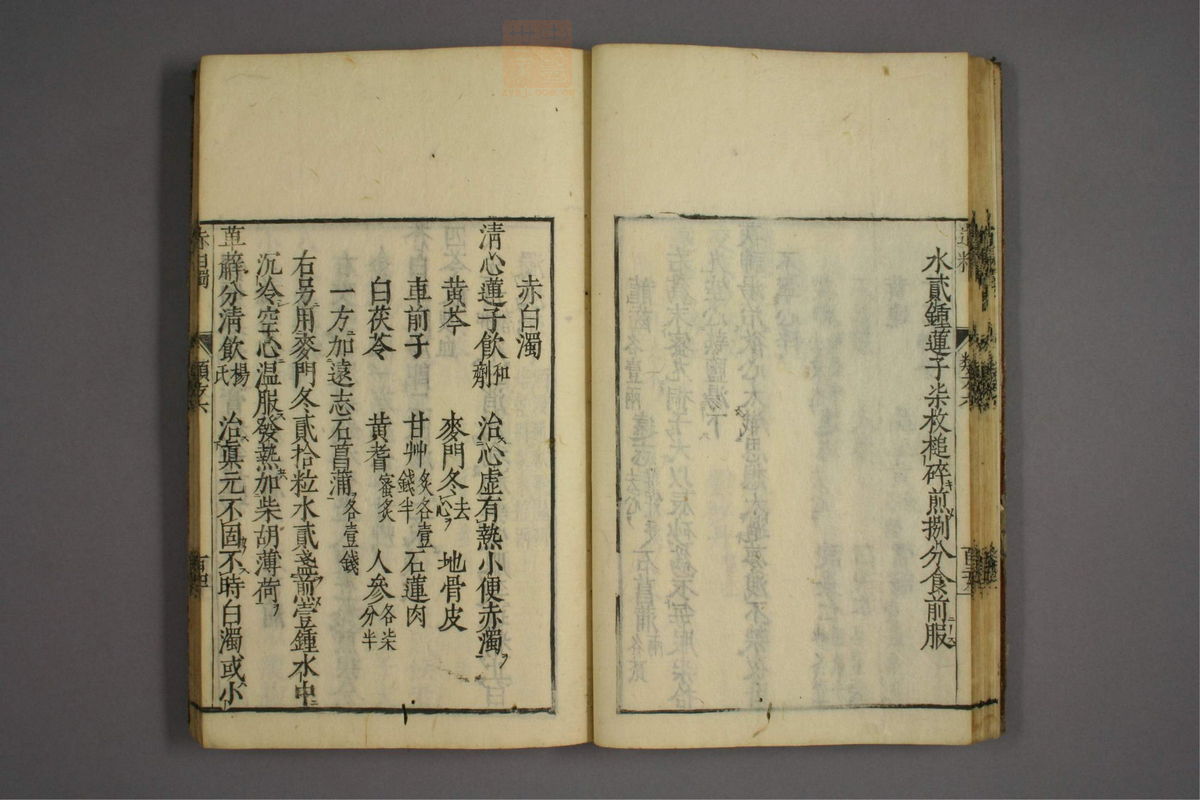 水貳鍾蓮子柒枚槌碎煎捌分食前服
赤白濁
清心蓮子飲和劑 治心虛有熱小便赤濁
黃芩 麥門冬去心 地骨皮
車前子 甘艸炙各壹錢半 石蓮肉
白茯苓 黃耆蜜炙 人參各柒分半
一方加遠志石菖蒲各壹錢
右另用麥門冬貳拾粒水貳盞煎壹鍾水中
沉冷空心温服發熱加柴胡薄荷
萆薢分清飲楊氏 治眞元不固不時白濁或小
赤白濁